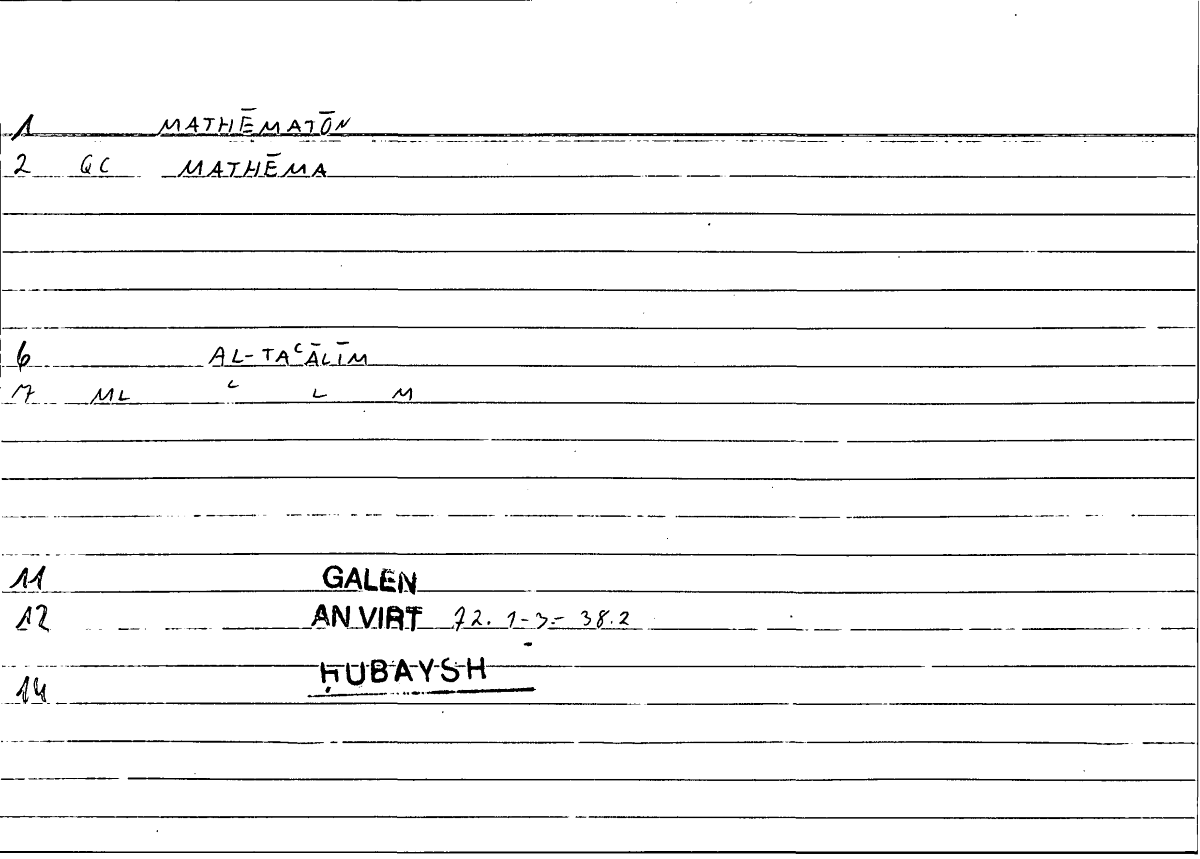 1 MATHĒMATŌN
2 QC MATHĒMA
6 AL-TAʿĀLĪM
7 ML ʿ L M
11 GALEN
12 AN VIRT 72. 1-3 = 38.2
14 ḤUBAYSH